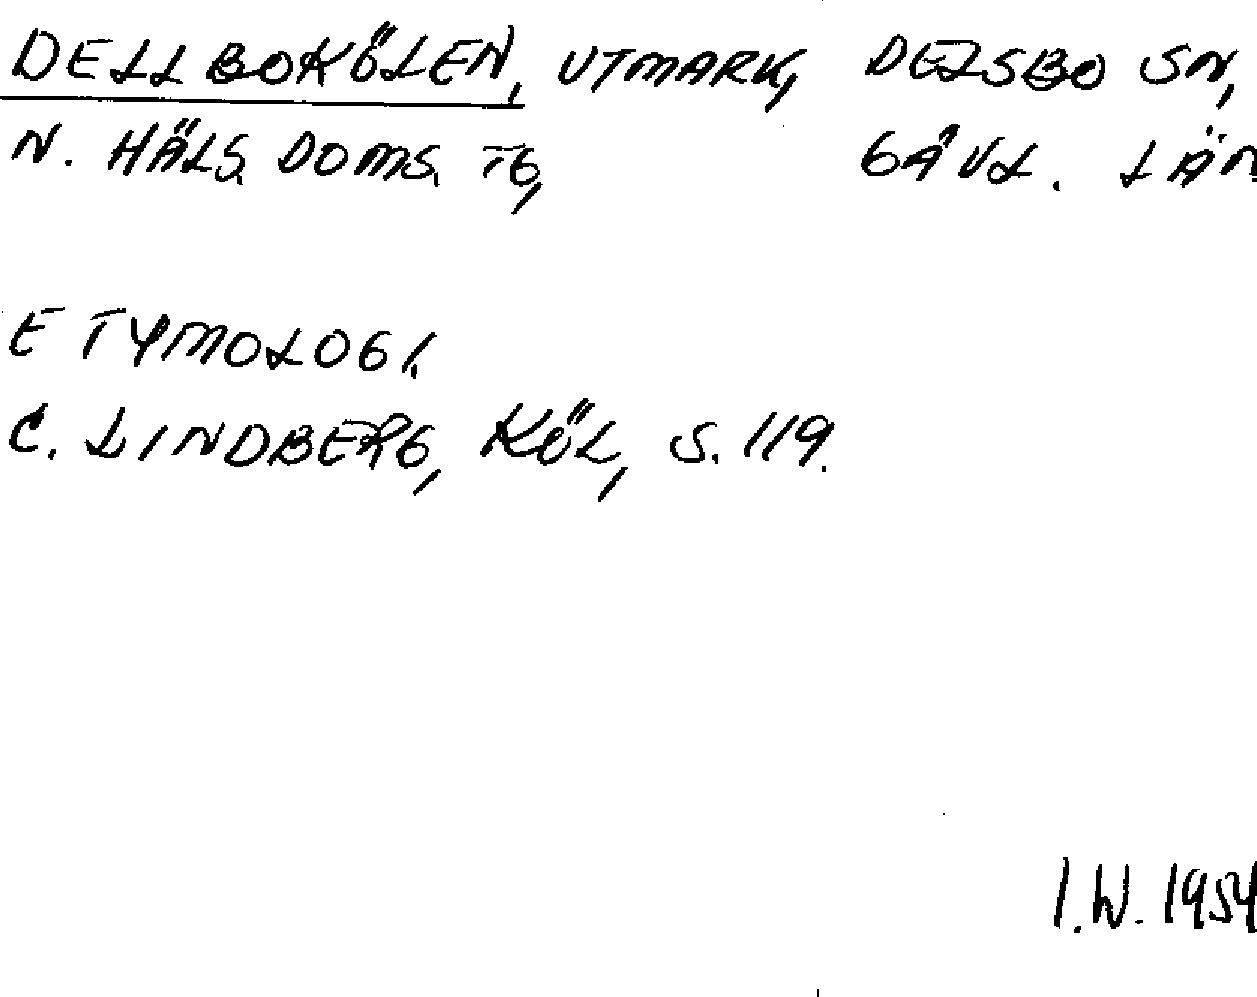 DELLBOKÖLEN, UTMARK, DELSBO SN,
N. HÄLS. DOMS. TG, GÄVL. LÄN
ETYMOLOGI.
C. LINDBERG, KÖL, S. 119.
I.W. 1954